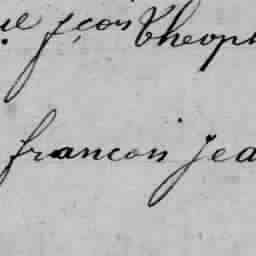 fçois Theoph
francois Jea